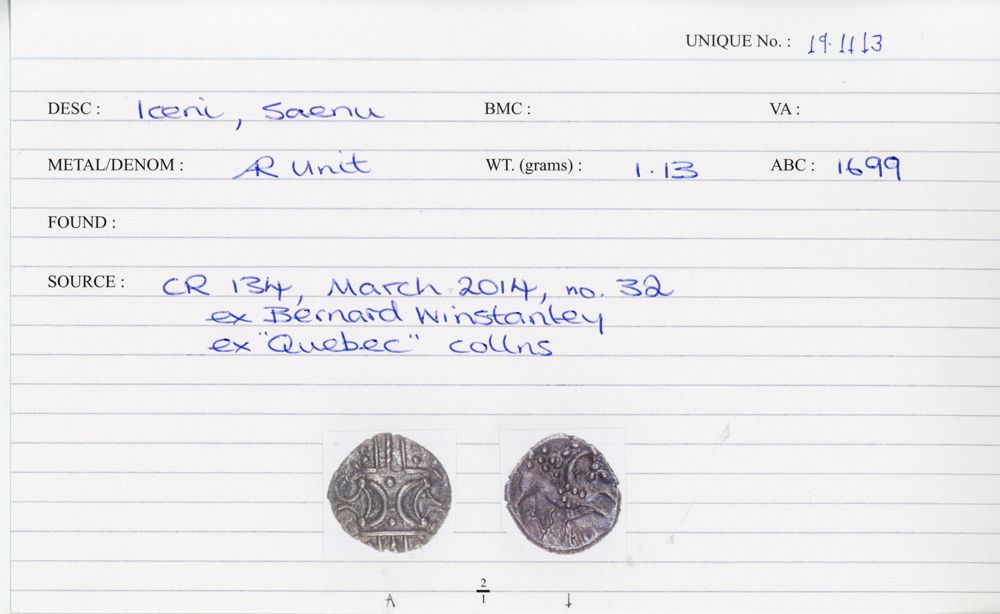 UNIQUE No. : 19.1113
DESC : Iceni, Saenu BMC : VA :
METAL/DENOM : AR Unit WT. (grams) : 1.13 ABC : 1699
FOUND :
SOURCE : CR 134, March 2014, no. 32
ex Bernard Winstanley
ex "Quebec" collns
2
1